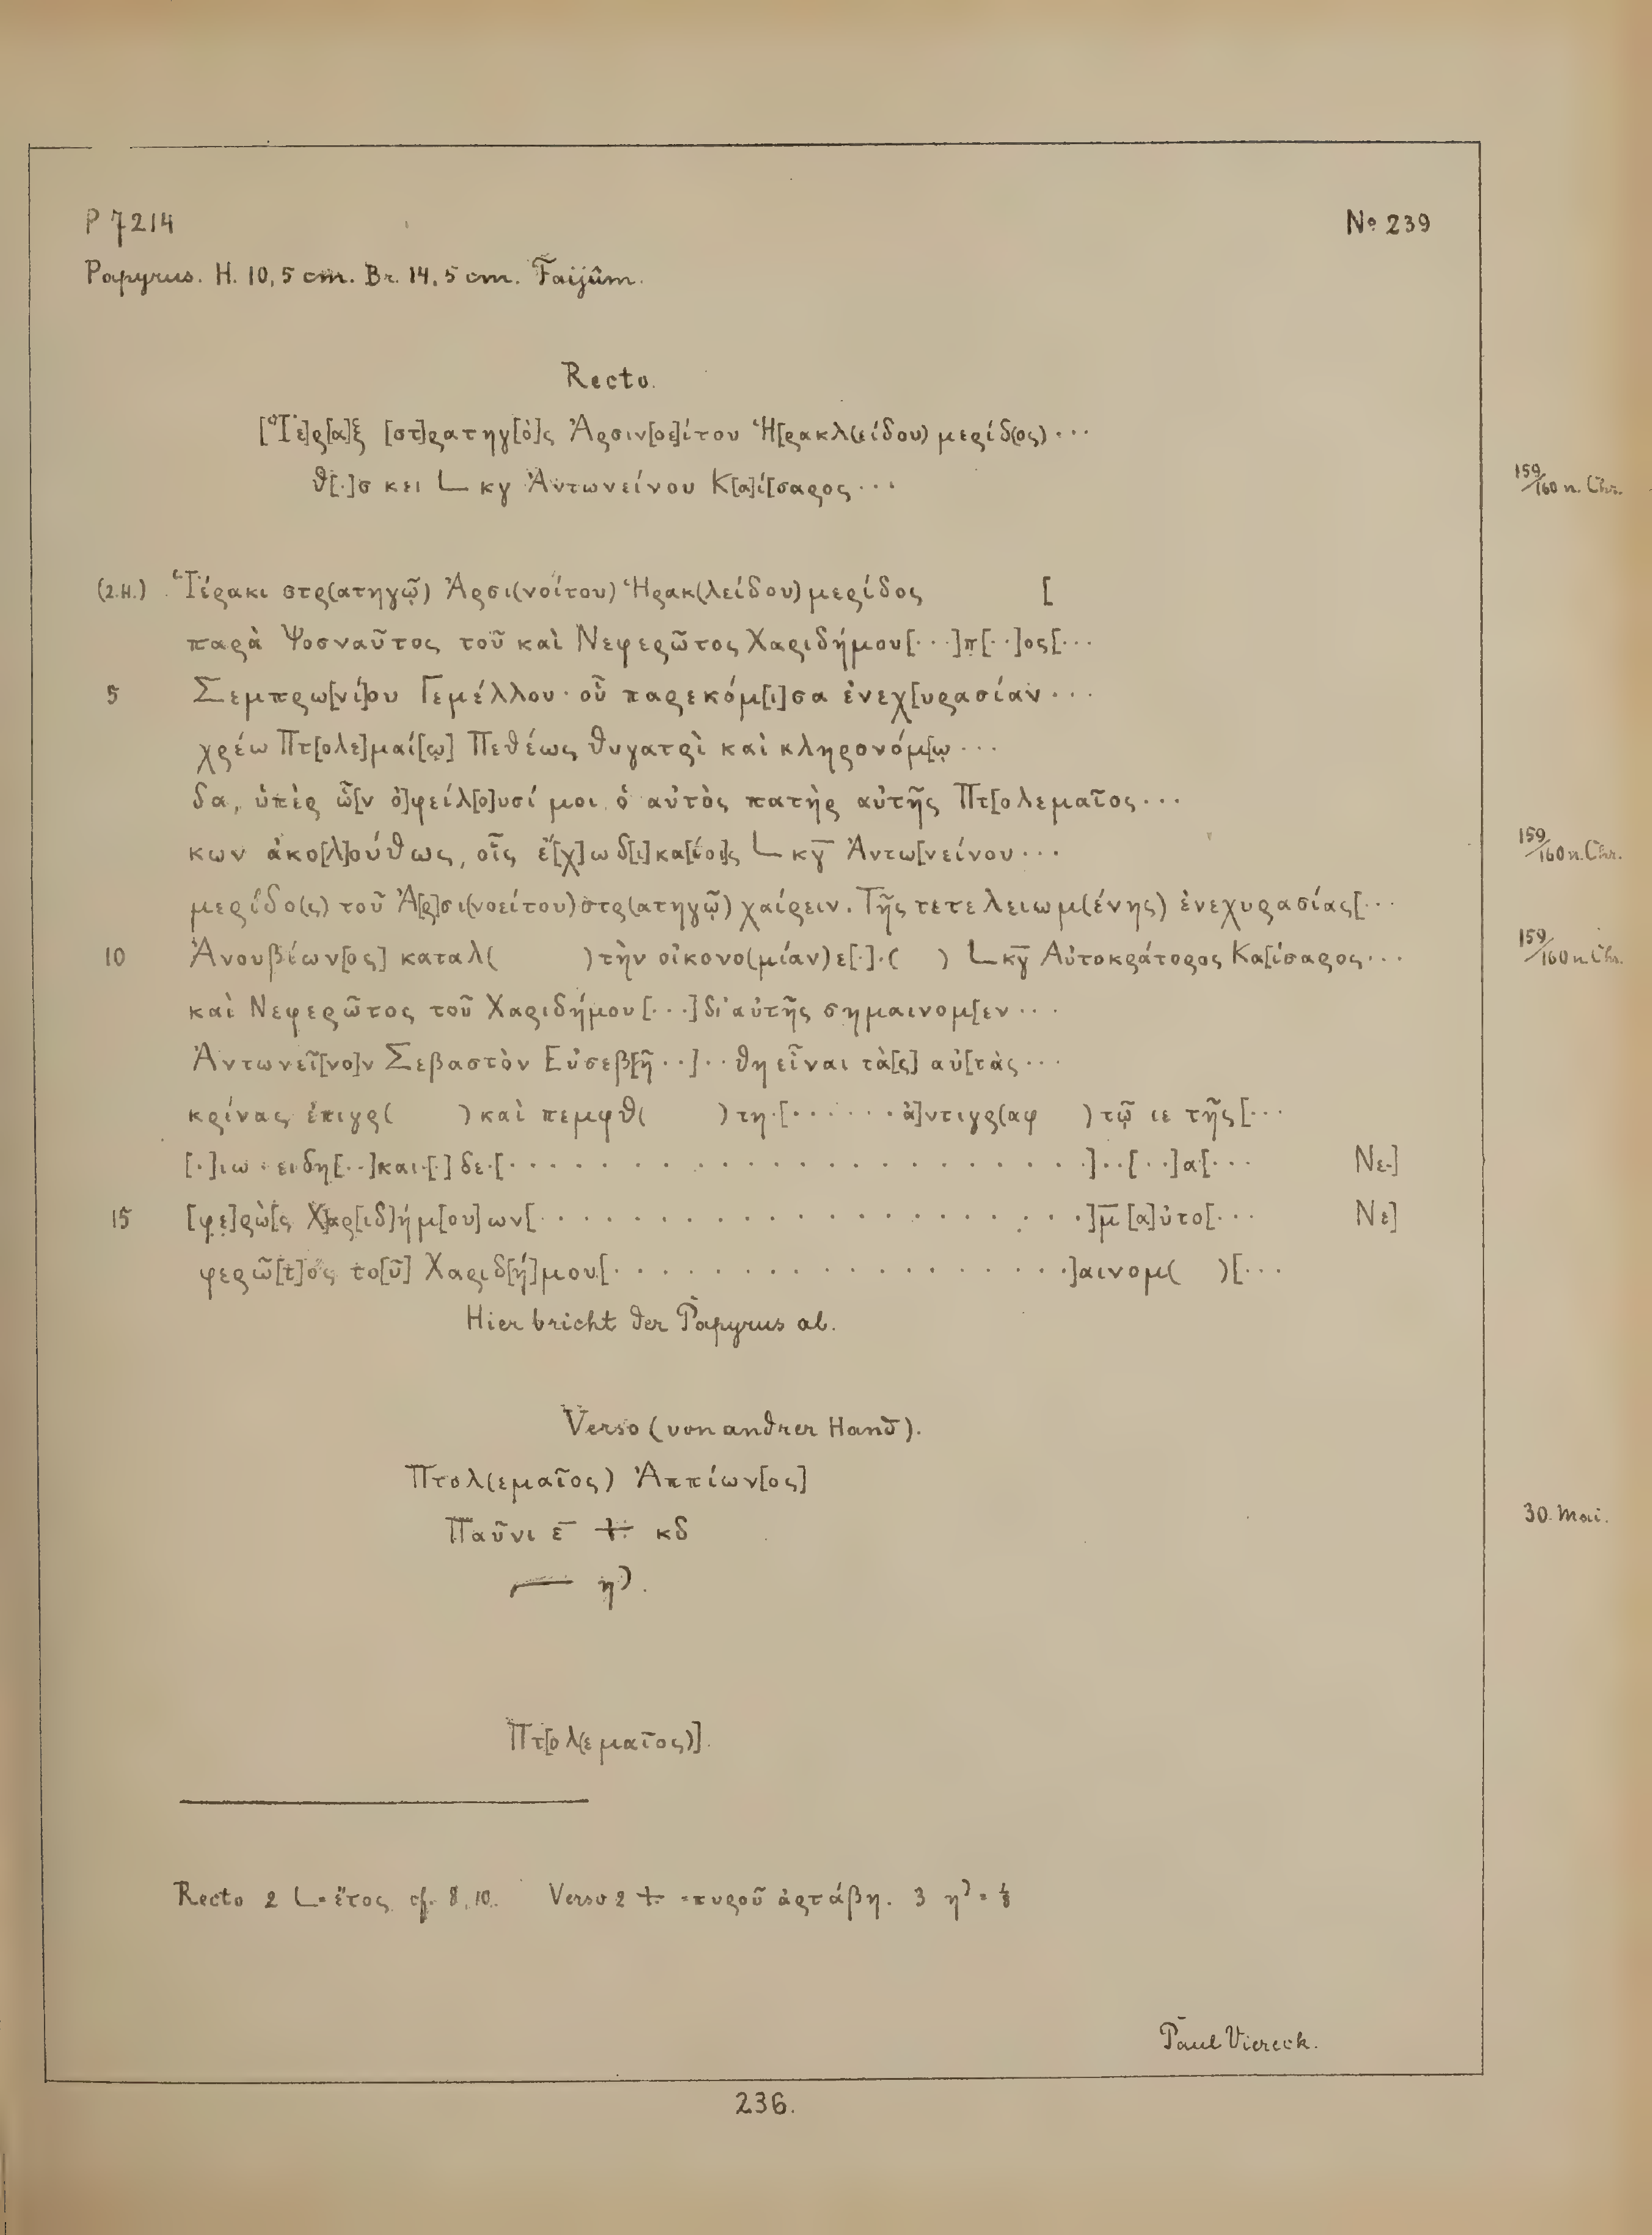 P 7214 No 239
Papyrus. H. 10,5 cm. Br. 14,5 cm. Faijûm.
Recto.
[Ἱέ]ρ[α]ξ [στ]ρατηγ[ὸ]ς Ἀρσιν[οε]ίτου Ἡ[ρακλ(είδου) μερίδ(ος) ...
θ[.]σ κει L κγ Ἀντωνείνου Κ[α]ί[σαρος ... 159/160 n. Chr.
(2.H.) Ἱέρακι στρ(ατηγῷ) Ἀρσι(νοίτου) Ἡρακ(λείδου) μερίδος [
παρὰ Ψοσναῦτος τοῦ καὶ Νεφερῶτος Χαριδήμου[...]π[..]ος[...
5 Σεμπρω[νί]ου Γεμέλλου· οὗ παρεκόμ[ι]σα ἐνεχ[υρασίαν ...
χρέω Πτ[ολε]μαί[ῳ] Πεθέως θυγατρὶ καὶ κληρονόμ[ῳ ...
δα, ὑπὲρ ὧ[ν ὀ]φείλ[ο]υσί μοι ὁ αὐτὸς πατὴρ αὐτῆς Πτ[ολεμαῖος ...
κων ἀκο[λ]ούθως, οἷς ἔ[χ]ω δ[ι]κα[ίοι]ς L κγ̅ Ἀντω[νείνου ... 159/160 n. Chr.
μερίδο(ς) τοῦ Ἀ[ρ]σι(νοείτου) στρ(ατηγῷ) χαίρειν. Τῆς τετελειωμ(ένης) ἐνεχυρασίας[...
10 Ἀνουβίων[ος] καταλ( ) τὴν οἰκονο(μίαν) ε[.].( ) L κγ̅ Αὐτοκράτορος Κα[ίσαρος ... 159/160 n. Chr.
καὶ Νεφερῶτος τοῦ Χαριδήμου [...] δι' αὐτῆς σημαινομ[εν ...
Ἀντωνεῖ[νο]ν Σεβαστὸν Εὐσεβ[ῆ ..]..θη εἶναι τὰ[ς] αὐ[τὰς ...
κρίνας ἐπιγρ( ) καὶ πεμφθ( ) τη.[......ἀ]ντιγρ(αφ ) τῷ ιε τῆς [...
[.]ιω.ειδη[..]και.[.] δε.[.....................]..[..]α[... Νε-]
15 [φε]ρὼ[ς Χ]αρ[ιδ]ήμ[ου] ων[....................]μ̅ [α]ὐτο[... Νε]
φερῶ[τ]ος το[ῦ] Χαριδ[ή]μου[.................]αινομ( )[...
Hier bricht der Papyrus ab.
Verso (von andrer Hand).
Πτολ(εμαῖος) Ἀππίων[ος]
Παῦνι ε̅ ⨪ κδ 30. Mai.
— η⟩.
Πτ[ολ(εμαῖος)].
Recto 2 L = ἔτος cf. 8, 10. Verso 2 ⨪ = πυροῦ ἀρτάβη. 3 η⟩ = 1/8
Paul Viereck.
236.